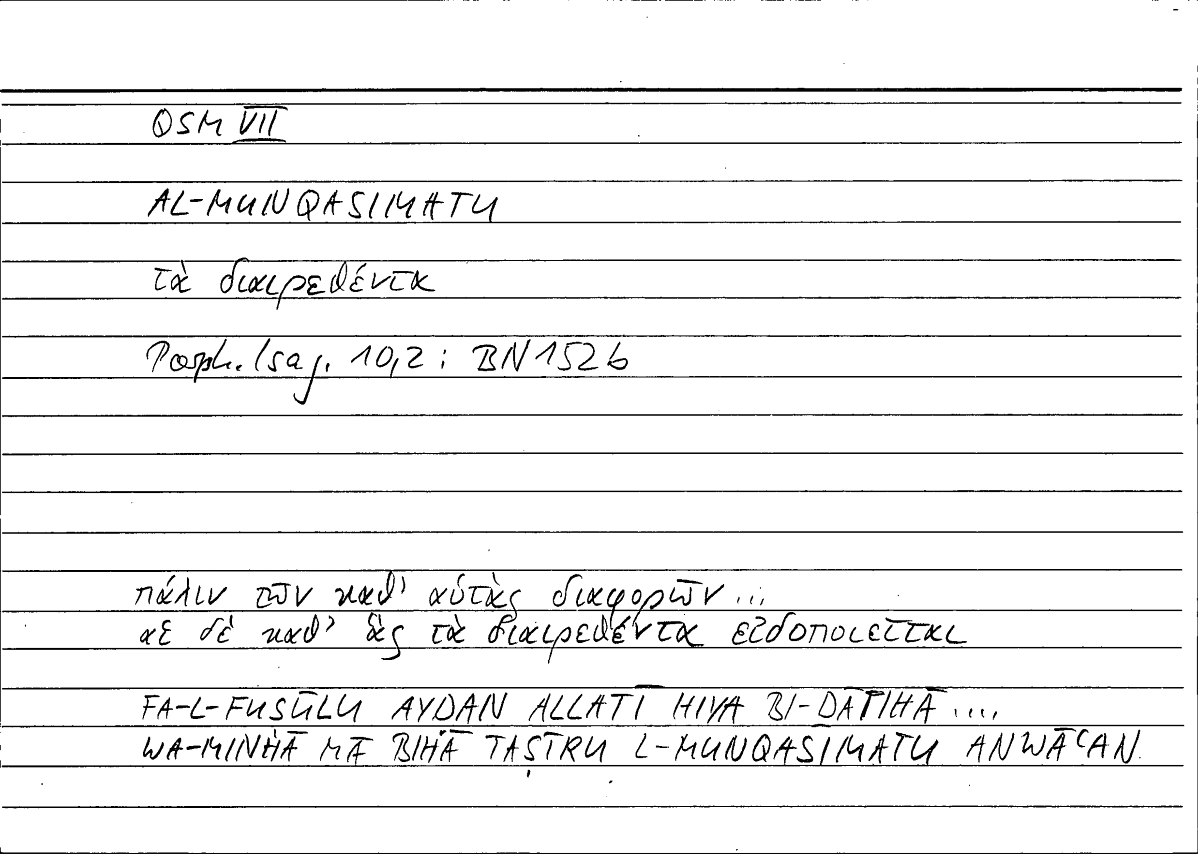 QSM VII
AL-MUNQASIMATU
τὰ διαιρεθέντα
Porph. Isag. 10,2 : BN 152 b
πάλιν τῶν καθ' αὑτὰς διαφορῶν ...
αἱ δὲ καθ' ἃς τὰ διαιρεθέντα εἰδοποιεῖται
FA-L-FUṢŪLU AYḌAN ALLATĪ HIYA BI-ḎĀTIHĀ ....
WA-MINHĀ MĀ BIHĀ TAṢĪRU L-MUNQASIMATU ANWĀʿAN.